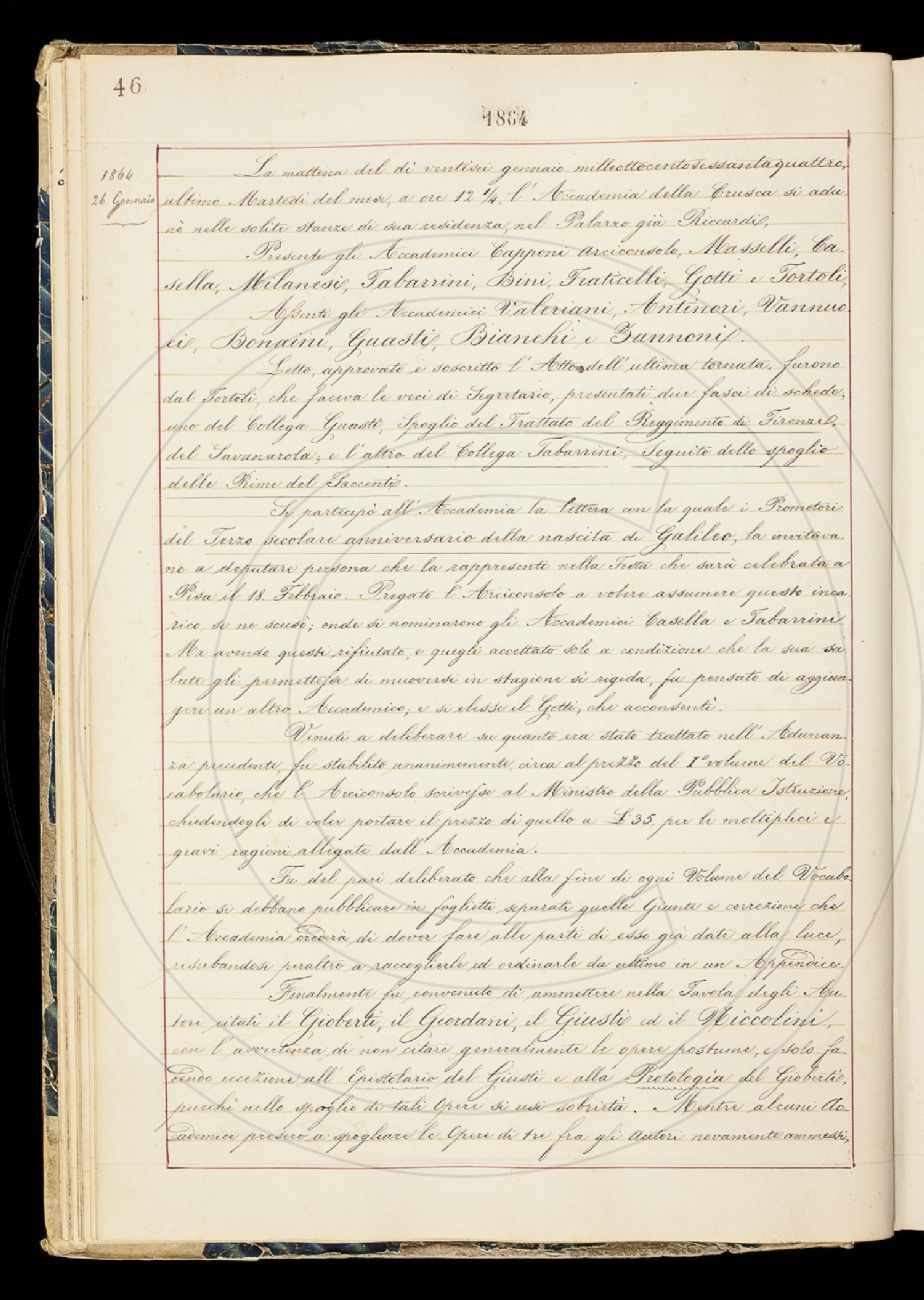 46.
1864
1864
26. Gennaio
La mattina del dì ventisei gennaio milleottocentosessantaquattro,
ultimo Martedì del mese, a ore 12 1/4, l'Accademia della Crusca si adu-
nò nelle solite stanze di sua residenza, nel Palazzo già Riccardi.
Presenti gli Accademici Capponi Arciconsolo, Masselli, Ca-
sella, Milanesi, Tabarrini, Bini, Fraticelli, Gotti e Tortoli,
Assenti gli Accademici Valeriani, Antinori, Vannuc-
ci, Bonaini, Guasti, Bianchi e Zannoni.
Letto, approvato e soscritto l'Atto dell'ultima tornata, furono
dal Tortoli, che faceva le veci di Segretario, presentati due fasci di schede;
uno del Collega Guasti, Spoglio del Trattato del Reggimento di Firenze,
del Savanarola; e l'altro del Collega Tabarrini, Seguito dello spoglio
delle Rime del Saccenti.
Si partecipò all'Accademia la lettera con la quale i Promotori
del Terzo secolare anniversario della nascita di Galileo, la invitava-
no a deputare persona che la rappresenti nella Festa che sarà celebrata a
Pisa il 18. Febbraio. Pregato l'Arciconsolo a volere assumere questo inca-
rico, se ne scusò; onde si nominarono gli Accademici Casella e Tabarrini.
Ma avendo questi rifiutato, e quegli accettato solo a condizione che la sua sa-
lute gli permettesse di muoversi in stagione sì rigida, fu pensato di aggiun-
gere un altro Accademico; e si elesse il Gotti, che acconsentì.
Venuti a deliberare su quanto era stato trattato nell'Adunan-
za precedente, fu stabilito unanimemente circa al prezzo del I° volume del Vo-
cabolario, che l'Arciconsolo scrivesse al Ministro della Pubblica Istruzione,
chiedendogli di voler portare il prezzo di quello a £ 35 per le molteplici e
gravi ragioni allegate dall'Accademia.
Fu del pari deliberato che alla fine di ogni Volume del Vocabo-
lario si debbano pubblicare in foglietti separati quelle Giunte e correzioni che
l'Accademia crederà di dover fare alle parti di esso già date alla luce,
riserbandosi peraltro a raccoglierle ed ordinarle da ultimo in un Appendice.
Finalmente fu convenuto di ammettere nella Tavola degli Au-
tori citati il Gioberti, il Giordani, il Giusti ed il Niccolini,
con l'avvertenza di non citare generalmente le opere postume, e solo fa-
cendo eccezione all'Epistolario del Giusti e alla Protologia del Gioberti,
purchè nello spoglio di tali Opere si usi sobrietà. Mentre alcuni Ac-
cademici presero a spogliare le Opere di tre fra gli autori novamente ammessi,